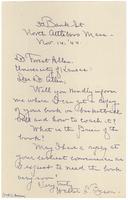 32 Bank St
North Attleboro Mass.
Nov. 14. '44.
Dr. Forrest Allen.
University of Kansas.
Dear Dr. Allen.
Will you kindly inform
me where I can get a copy
of your book on Basket
Ball and how to coach it?
What is the Price of the
book?
May I have a reply at
your earliest convenience as
I expect to need the book
very soon!
Very Truly
Walter E.